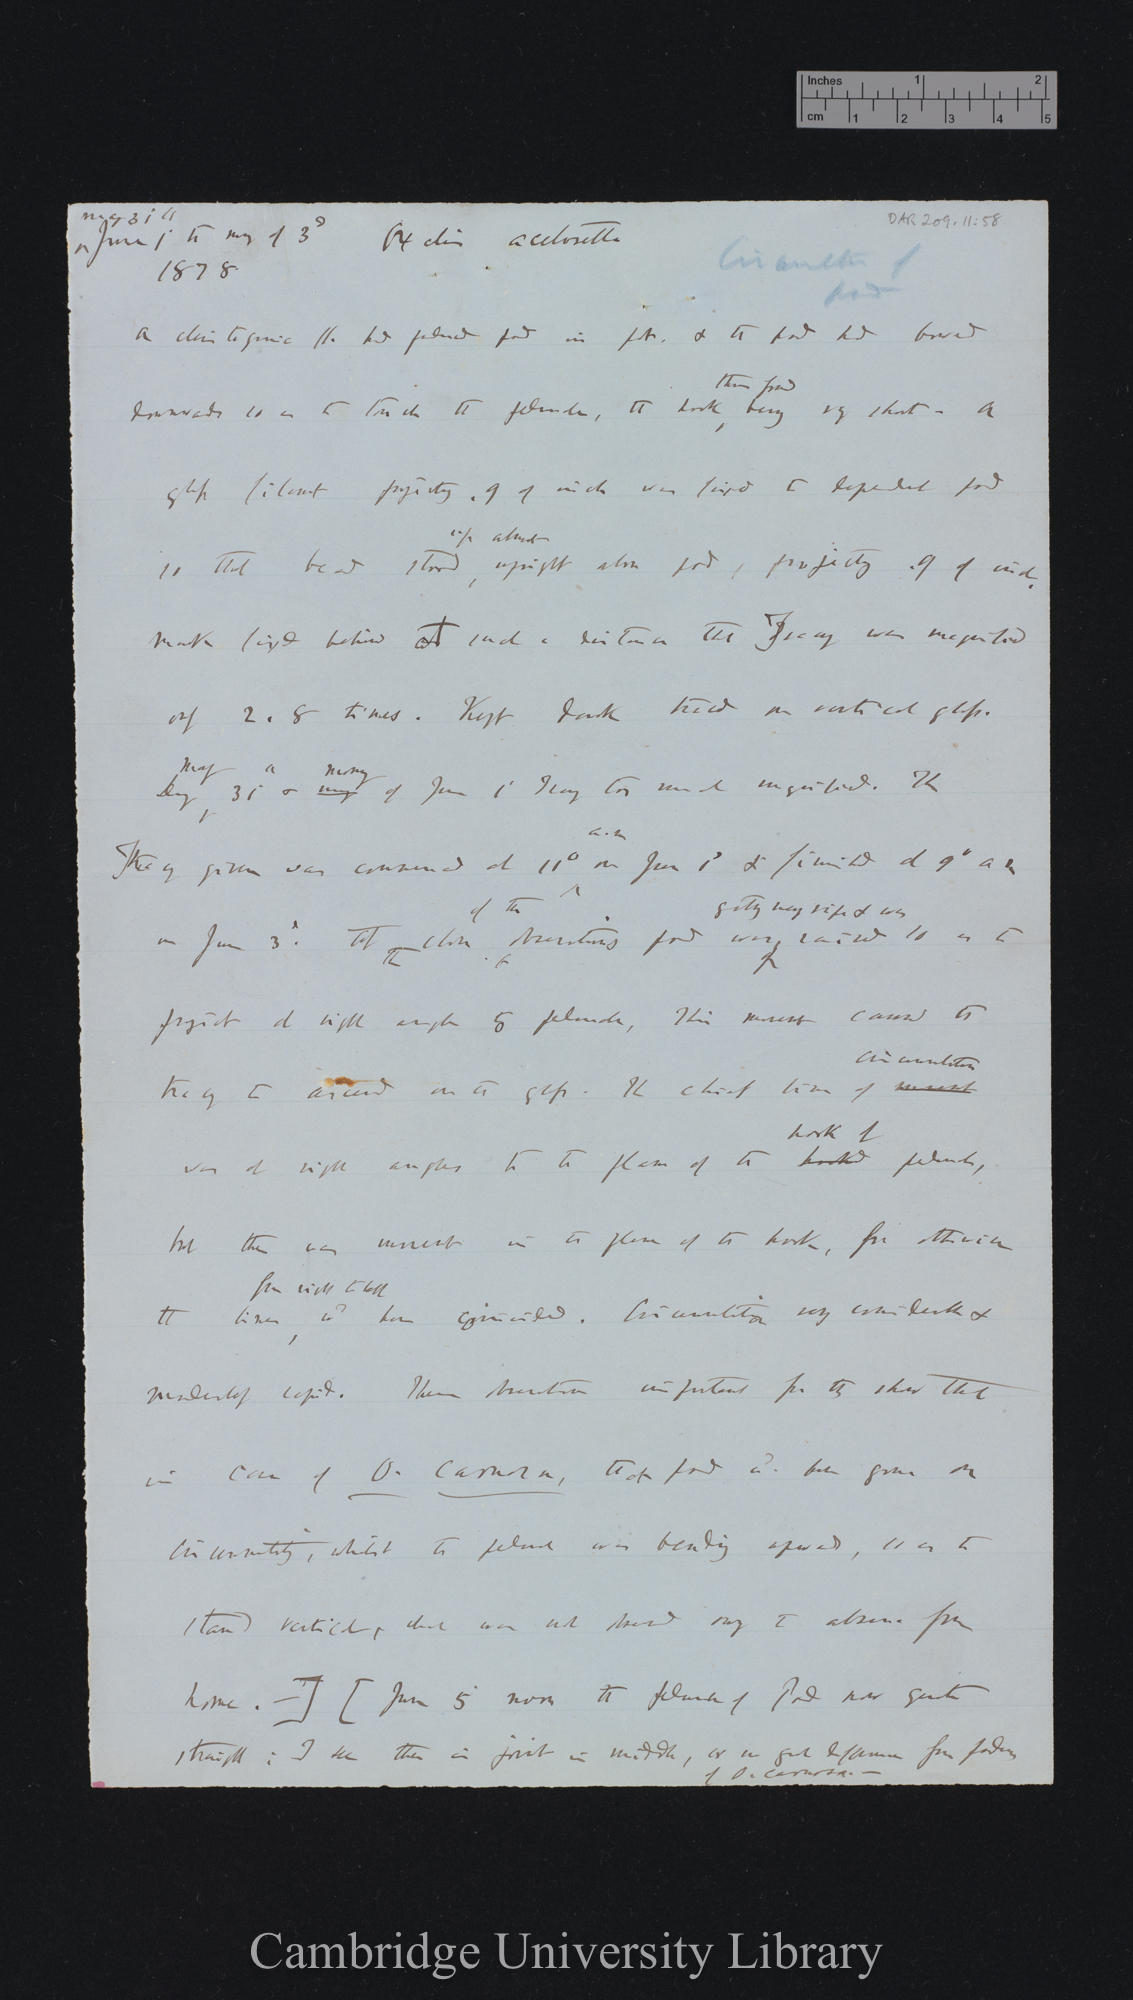 Inches 1 2
cm 1 2 3 4 5
DAR 209.11:58
May 31
June 1 to mg of 3d Oxalis acetosella
1878
Circumnutation of
pod
A cleistogamic fl. had produced pod in pot. & the pod had bowed
downwards so as to touch the peduncle, the hook, thus formed being very short — A
glass filament projecting .9 of inch was fixed to dependent pod
so that bead stood, almost upright above pod, projecting .9 of inch.
mark fixed behind at such a distance that Tracing was magnified
only 2.8 times. Kept dark traced on vertical glass.
May 31 & morning of June 1 Tracing too much magnified. The
Tracing given was commenced at 11° a.m on June 1 & finished at 9° a m
on June 3d. At the close of the observations pod was getting very ripe & was raised so as to
project at right angles to peduncle, This movement caused the
tracing to ascend on the glass. The chief line of movement circumnutation
was at right angles to the plane of the hooked hook of peduncle,
but there was movement in the plane of the hook, for otherwise
the lines, from right to left wd have coincided. Circumnutation very considerable &
moderately rapid. These observations important for they show that
in case of O. carnosa, the pod wd. have gone on
circumnutating, whilst the peduncle was bending upwards, so as to
stand vertical, which was not observed owing to absence from
home. —] [June 5 noon the peduncle of Pod now quite
straight; I see there is joint in middle, or no great difference from
of O. carnosa. —
Cambridge University Library